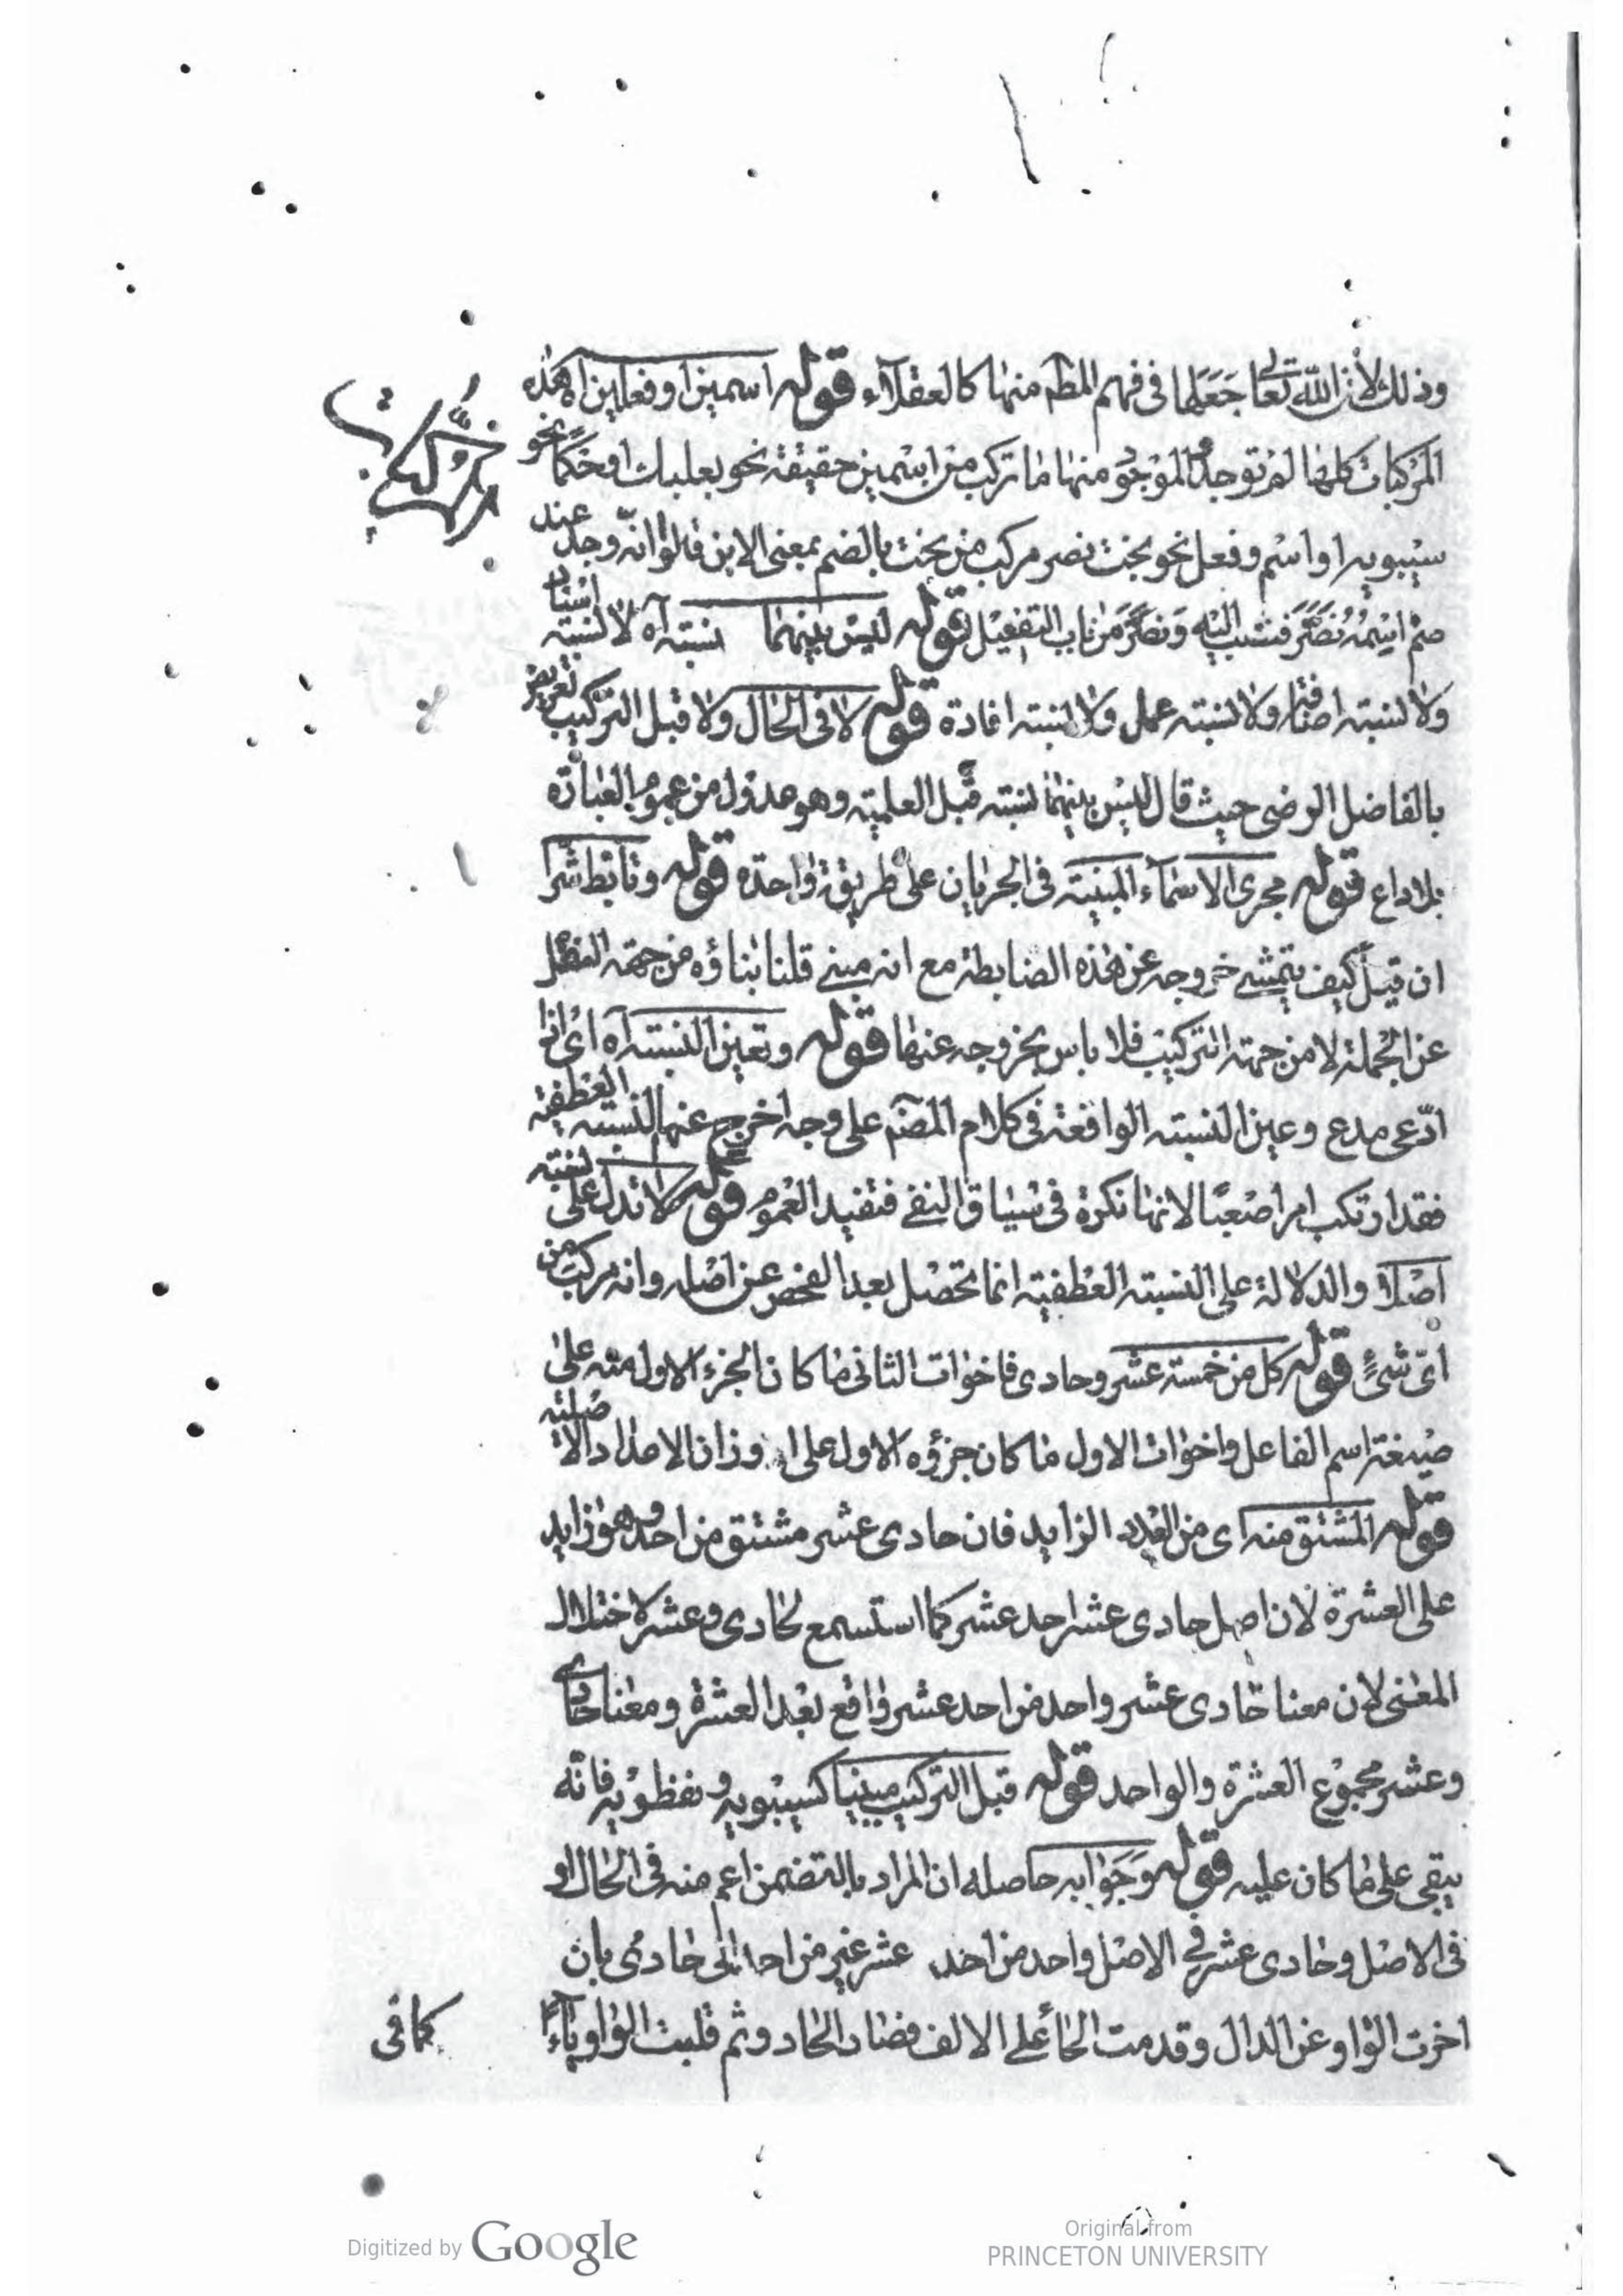 وذلك لان الله تعا جعلها فى فهم المطم منها كالعقلاء قوله اسمين او فعلين اه هذه
المركبات كلها لم توجد الموجود منها ما تركب من اسمين حقيقة نحو بعلبك او حكما نحو
سيبويه او اسم وفعل نحو بخت نصر مركب من بخت بالضم بمعنى الابن قالوا انه وجد عند
صنم اسمه نصر فنسب اليه ونصر من باب التفعيل قوله ليس بينهما نسبته آه لا نسبته اسناد
ولا نسبته اضافة ولا نسبته عمل ولا نسبته افادة قوله لا فى الحال ولا قبل التركيب تعريض
بالفاضل الرضى حيث قال ليس بينهما نسبته قبل العلميته وهو عدول من عموم العبارة
بلا داع قوله مجرى الاسماء المبنيته فى الجريان على طريقة واحدة قوله وتابط شرا
ان قيل كيف يتمشى خروجه عن هذه الضابطة مع انه مبنى قلنا بناؤه من جهته النقل
عن الجملة لا من جهته التركيب فلا باس بخروجه عنها قوله وتعين النسبته آه اى
ادعى مدع وعين النسبته الواقعة فى كلام المصنم على وجه اخرج عنها النسبته العطفيته
فقد ارتكب امرا صعبا لانها نكرة فى سياق النفى فتفيد العموم قوله لا تدل على نسبته
اصلا والدلالة على النسبته العطفيته انما تحصل بعد الفحص عن اصله وانه مركب من
اى شئ قوله كل من خمسته عشر وحادى فاخوات الثانى ما كان الجزء الاول منه على
صيغة اسم الفاعل واخوات الاول ما كان جزؤه الاول على اوزان الاعداد
قوله المشتق منه اى من العدد الزايد فان حادى عشر مشتق من احد وهو زايد
على العشرة لان اصل حادى عشر احد عشر كما استسمع لحادى وعشر لاختلال
المعنى لان معنا حادى عشر واحد من احد عشر واقع بعد العشرة ومعنا حادى
وعشر مجموع العشرة والواحد قوله قبل التركيب مبنيا كسيبويه ونفطويه فانه
يبقى على ما كان عليه قوله وجوابه حاصله ان المراد بالتضمن اعم منه فى الحال او
فى الاصل وحادى عشر فى الاصل واحد من احد عشر غير من احد الى حادى بان
اخرت الواو عن الدال وقدمت الحاء على الالف فصار الحادو ثم قلبت الواو ياء
كما فى
Digitized by Google
Original from
PRINCETON UNIVERSITY